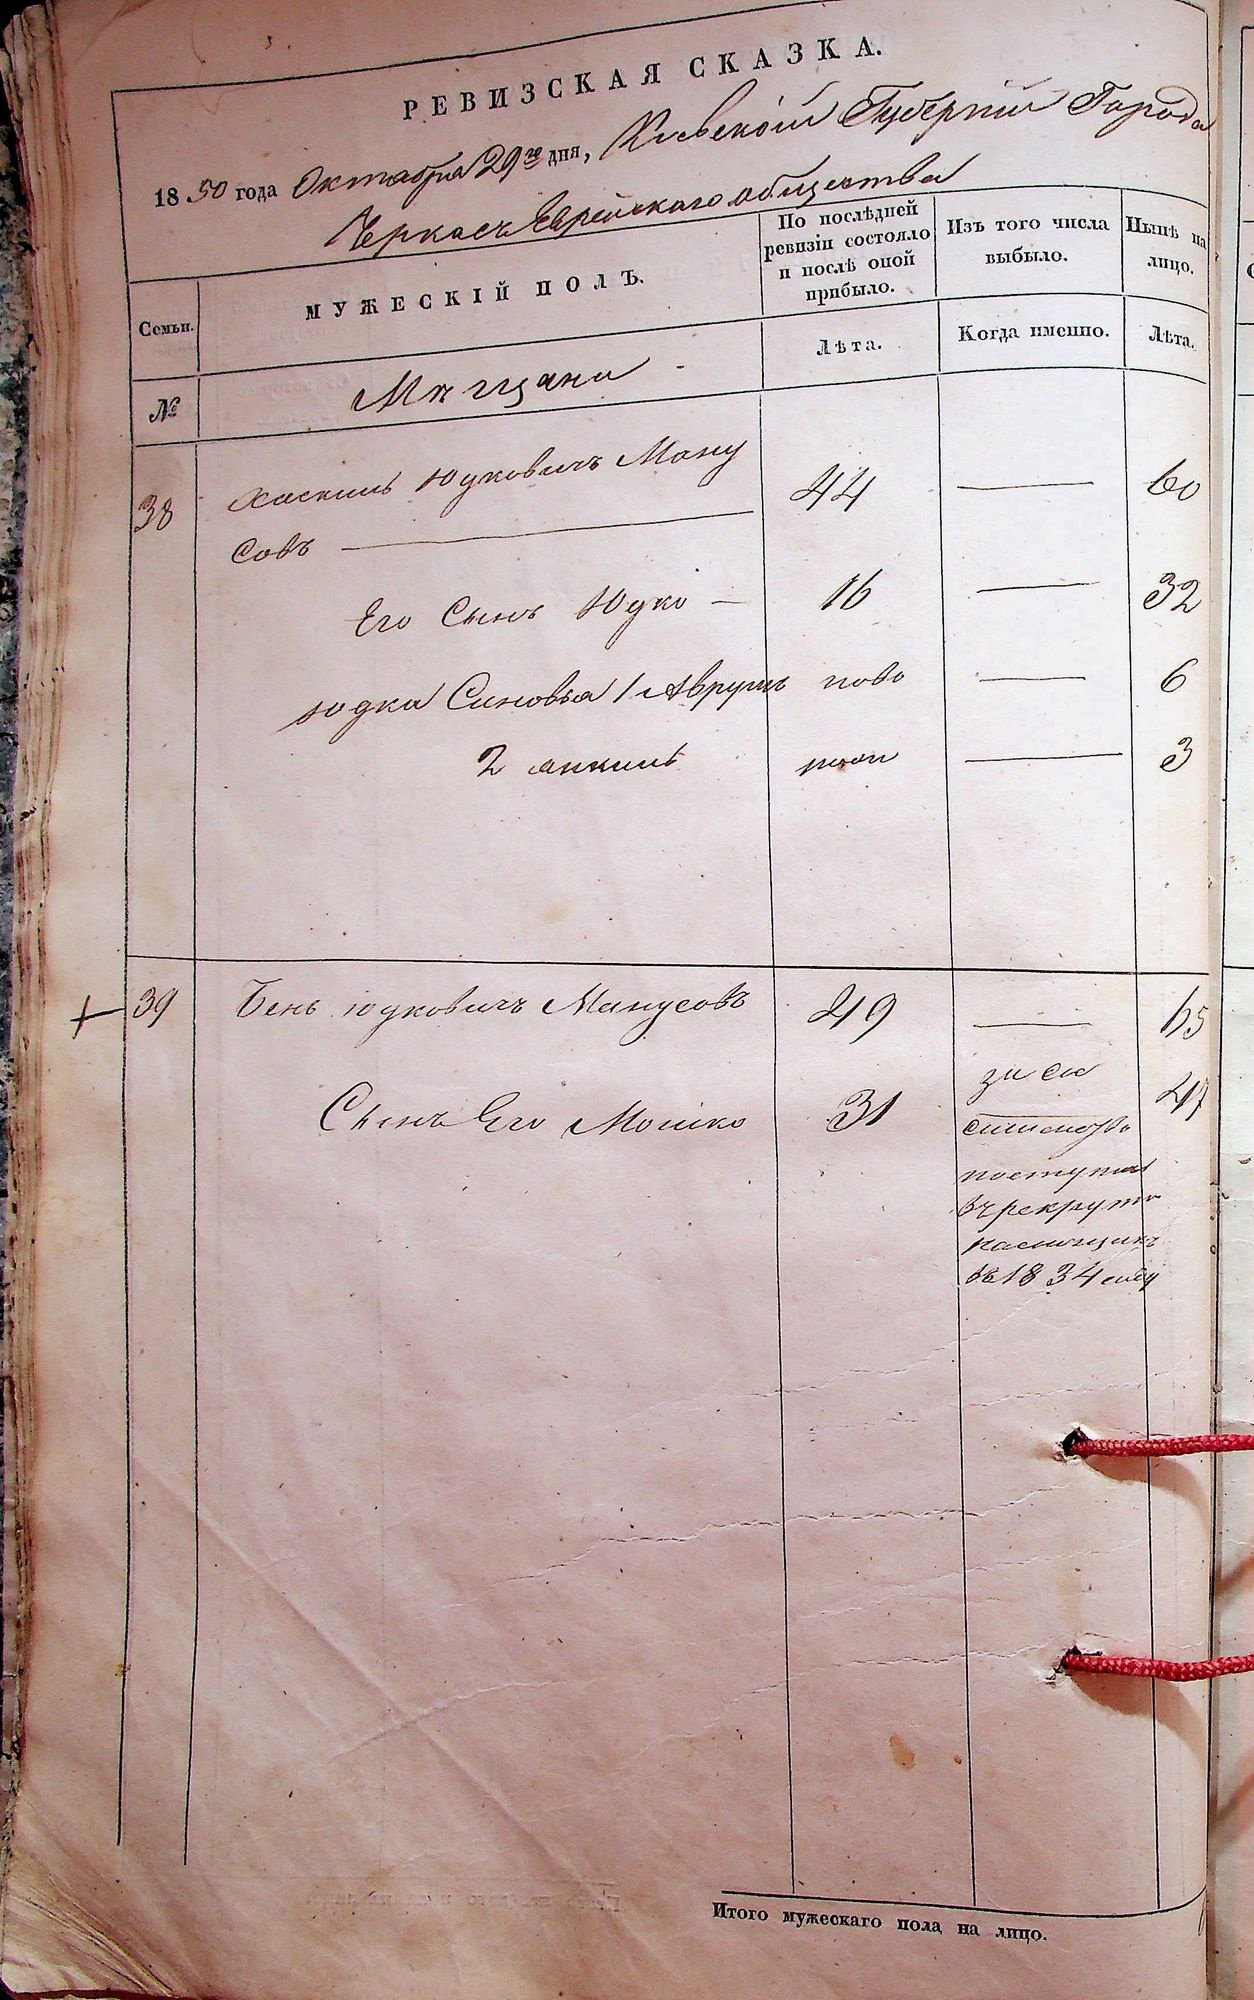 РЕВИЗСКАЯ СКАЗКА.
1850 года Октября 29го дня, Киевской Губернии Города
Черкасъ Еврейскаго общества
Семьи.
МУЖЕСКІЙ ПОЛЪ.
По послѣдней
ревизіи состояло
и послѣ оной
прибыло.
Изъ того числа
выбыло.
Нынѣ на
лицо.
Лѣта.
Когда именно.
Лѣта.
№
Мѣщане
38 Хаскиль Юдковичъ Ману 44 — 60
совъ —
Его Сынъ Юдко — 16 — 32
Юдка Синовья 1 Аврумъ ново — 6
2 Анкиль рожд — 3
39 Бень Юдковичъ Манусовъ 49 — 65
Сынъ Его Мошко 31 за се 47
поступил
въ рекруты
въ 1834 году
Итого мужескаго пола на лицо.